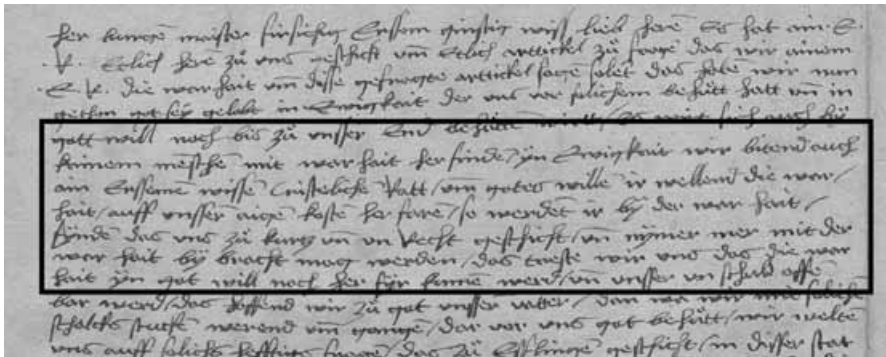 her burgen maister fürsichtig Ersam günstig wiss lieb heren Es hat ain · E ·
· R · Etlich heren zů uns geschickt um Etlich arttickel zů frage das wir ainem
· E · R · die warhait um disse gefragte artickel sagen solet das haben wir nun
gethon got sey gelobt in Ewigkait der uns vor solichem behütt hatt un in
gott will noch bis zů unsser End behütten wirtt / Es wirt sich auch by
kainem menschen mit warhait her finden / yn Ewigkait wir bitend auch
ain Erssemen wissen Cristeliche Ratt / um gotes wille ir wellend die war /
hait / auff unssern aigen kosten her faren / so werdet ir by der war hait /
fynden das uns zů kurtz un un Recht geschicht / un nymer mer mit der
war hait by bracht mag werden / das treste wir uns das die war
hait yn got will noch her für kumen werd / un unsser un schuld offe
bar werd / das hoffend wir zů got unsser vatter / dan wa wir mit soliche
schalcks stucken werend um gange / dar vor uns got behütt / wir welten
uns auff solichs hefftigs frage / das zů Esslingen geschicht / in disser stat